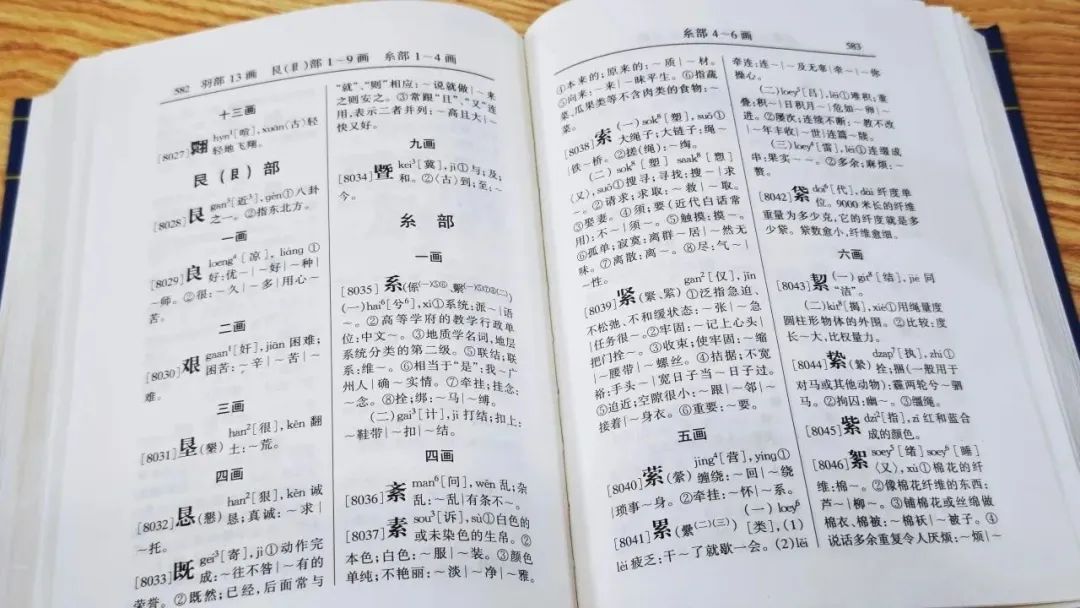 582 羽部 13 画 艮(⻖)部 1～9 画 糸部 1～4 画
十三画
[8027]翾 hyn¹[喧], xuān〈古〉轻
轻地飞翔。
艮(⻖)部
[8028]艮 gan³[近³], gèn①八卦
之一。②指东北方。
一画
[8029]良 loeng⁴[凉], liáng ①
好:优～|～好|～种|
～师。②很:～久|～多|用心～
苦。
二画
[8030]艰 gaan¹[奸], jiān 困难;
困苦:～辛|～苦|～
难。
三画
[8031]垦(墾) han²[很], kěn 翻
土:～荒。
四画
[8032]恳(懇) han²[狠], kěn 诚
恳;真诚:～求|
～托。
[8033]既 gei³[寄], jì①动作完
成:～往不咎|～有的
荣誉。②既然;已经,后面常与
“就”、“则”相应:～说就做|～来
之则安之。③常跟“且”、“又”连
用,表示二者并列:～高且大|～
快又好。
九画
[8034]暨 kei³[冀], jì①与;及;
和。②〈古〉到;至:～
今。
糸部
一画
[8035]系(係㈠⑤⑥、繫㈠⑤⑦⑧㈡)
(一)hai⁶[兮⁶], xì①系统:派～|语
～。②高等学府的教学行政单
位:中文～。③地质学名词,地层
系统分类的第二级。⑤联结;联
系:维～。⑥相当于“是”:我～广
州人|确～实情。⑦牵挂;挂念:
～念。⑧拴;绑:～马|～缚。
(二)gai³[计], jì 打结;扣上:
～鞋带|～扣|～结。
四画
[8036]紊 man⁶[问], wěn 乱;杂
乱:～乱|有条不～。
[8037]素 sou³[诉], sù①白色的
或未染色的生帛。②
本色;白色:～服|～装。③颜色
单纯;不艳丽:～淡|～净|～雅。
糸部 4～6 画 583
④本来的;原来的:～质|～材。
⑤向来:～来|～昧平生。⑥指蔬
菜、瓜果类等不含肉类的食物:～
菜。
[8038]索 (一)sok³[塑], suǒ①
大绳子;大链子:绳～|
铁～桥。②搓(绳):～绹。
(二)sok³[塑] saak³[愬]
〈又〉, suǒ①搜寻;寻找:搜～|求
～。②请求;求取:～救|～取。
③娶妻。④须;要(近代白话常
用):不～|须～。⑤触摸:摸～。
⑥孤单;寂寞:离群～居|～然无
味。⑦离散:离～。⑧尽:气～|
～性。
[8039]紧(緊、紧) gan²[仅], jǐn
①泛指急迫、
不松弛、不和缓状态:～张|～急
|任务很～。②牢固:～记上心头|
把门拴～。③收束;使牢固:～缩
|～腰带|～螺丝。④拮据;不宽
裕:手头～|宽日子当～日子过。
⑤迫近;空隙很小:～跟|～邻|～
接着|～身衣。⑥重要:～要。
五画
[8040]萦(縈) jing⁴[营], yíng①
缠绕:～回|～绕
|琐事～身。②牵挂:～怀|～系。
[8041]累(纍㈡㈢) (一)loey⁶
[类], (1)
lèi 疲乏:干～了就歇一会。(2)lěi
牵连:连～|～及无辜|牵～|～你
操心。
(二)loey⁵[吕], lěi①堆积;重
叠:积～|日积月～|危如～卵|～
进。②屡次;连续不断:～教不改
|～年丰收|～世|连篇～牍。
(三)loey⁴[雷], léi①连缀成
串:果实～～。②多余;麻烦:～
赘。
[8042]紊 doi⁶[代], dài 纤度单
位。9000 米长的纤维
重量为多少克,它的纤度就是多
少袋。袋数愈小,纤维愈细。
六画
[8043]絜 (一)git³[结], jié 同
“洁”。
(二)kit³[揭], xié①用绳量度
圆柱形物体的外围。②比较:度
长～大,比权量力。
[8044]絷(縶) dzap⁷[执], zhí①
拴;捆(一般用于
对马或其他动物):霾两轮兮～驷
马。②拘囚:幽～。③缰绳。
[8045]紫 dzi²[指], zǐ 红和蓝合
成的颜色。
[8046]絮 soey⁵[绪] soey⁶[睡]
〈又〉, xù①棉花的纤
维:棉～。②像棉花纤维的东西:
芦～|柳～。③铺棉花或丝绵做
棉衣、棉被:～棉袄|～被子。④
说话多余重复令人厌烦:～烦|～